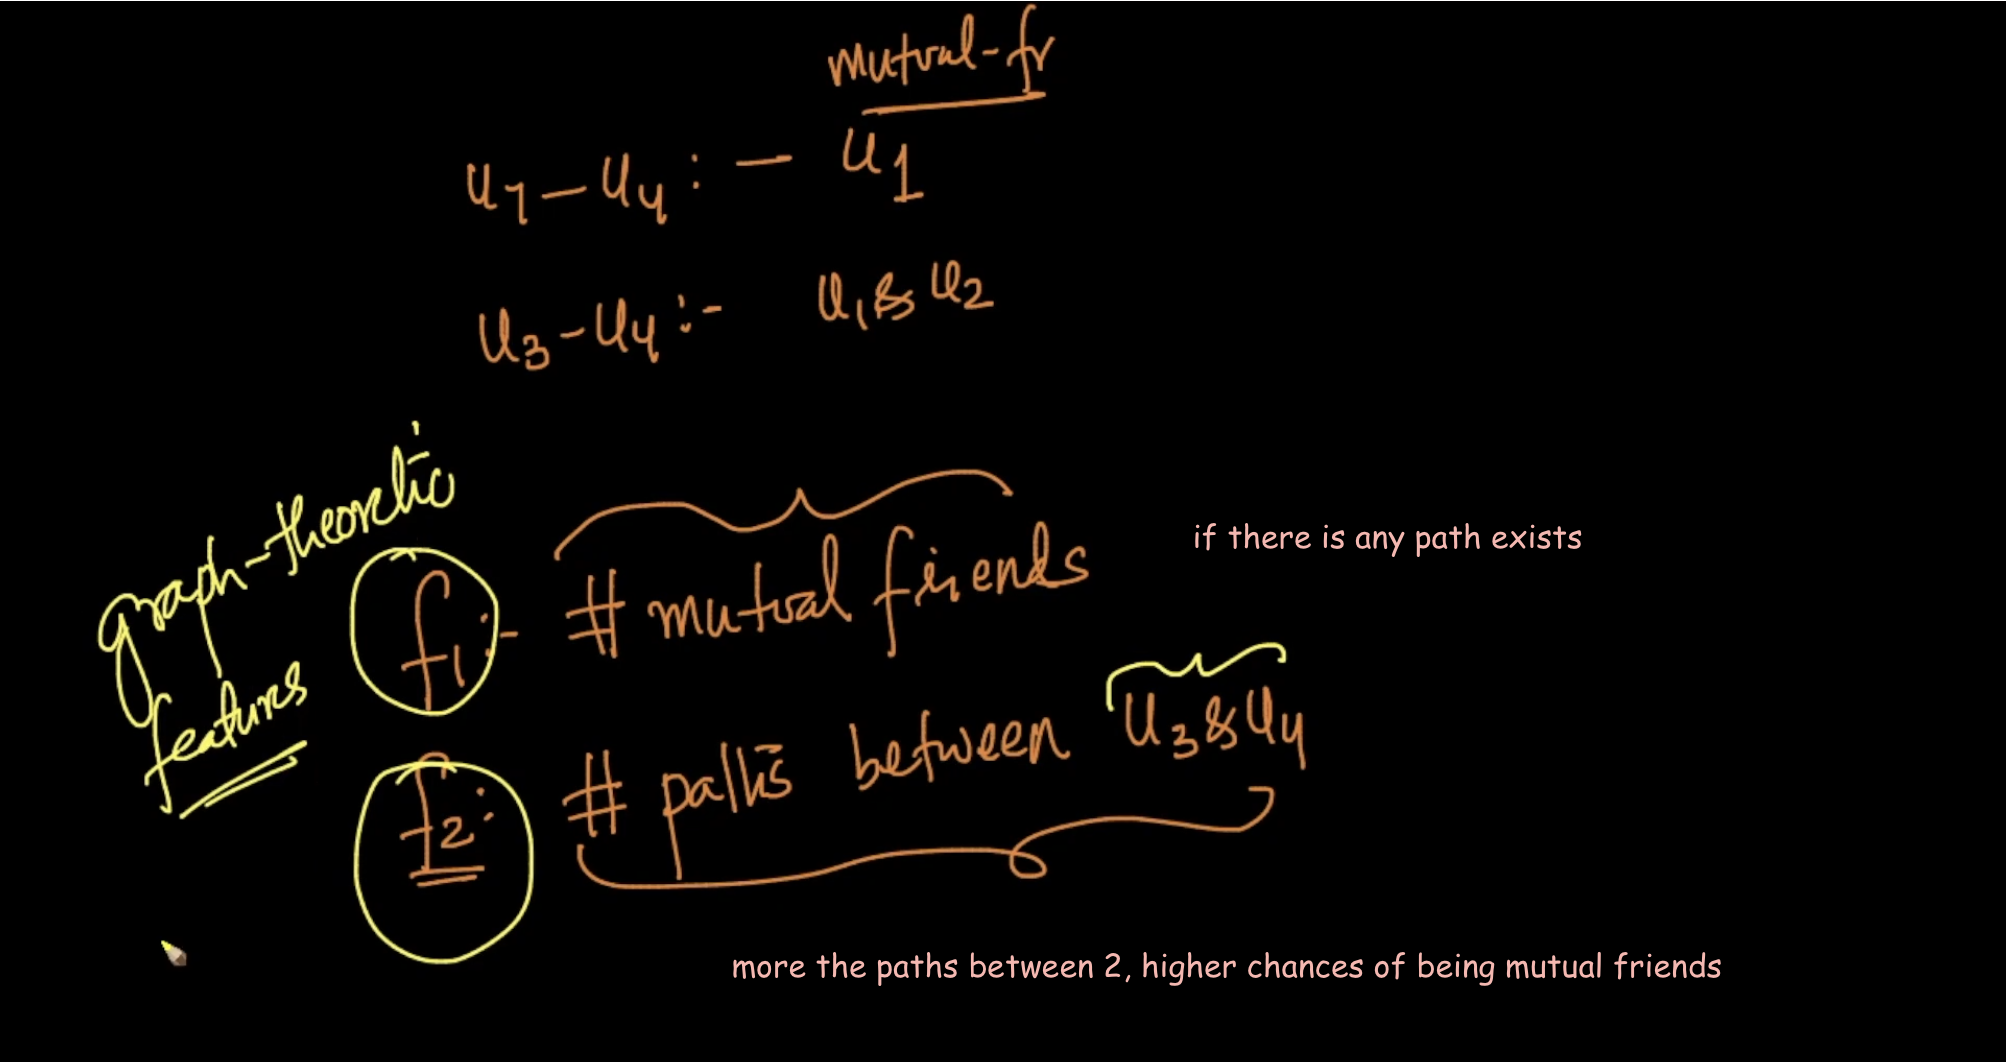 mutual-fr
u7 – u4 : – u1
u3 – u4 :- u1 & u2
graph-theoretic
features
f1 :- # mutual friends
if there is any path exists
f2 : # paths between u3 & u4
more the paths between 2, higher chances of being mutual friends